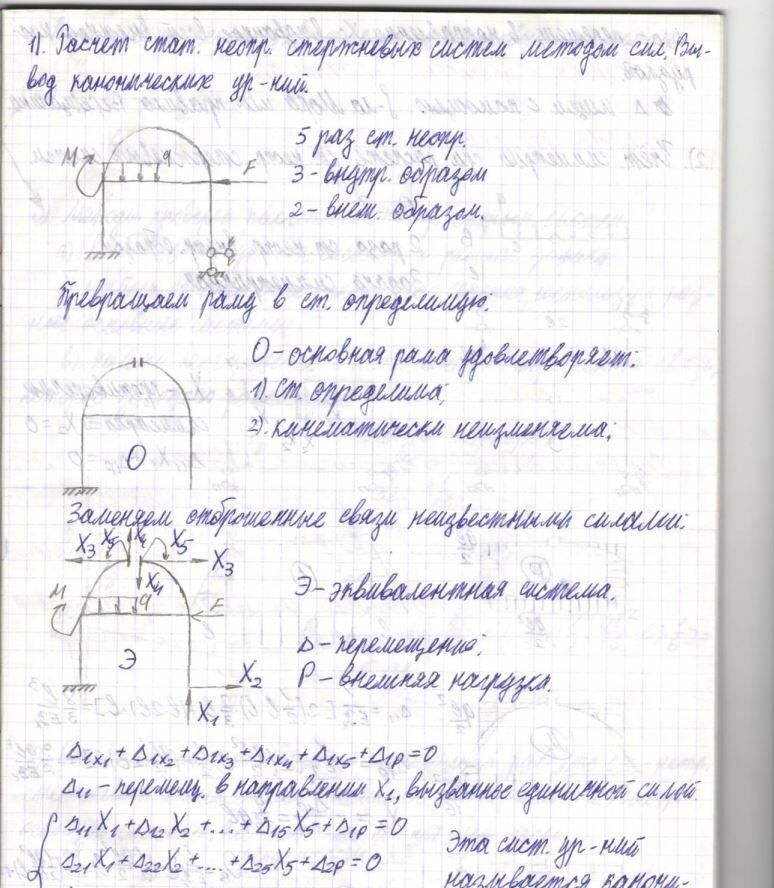 1). Расчет стат. неопр. стержневых систем методом сил. Вы-
вод канонических ур-ний.
M q F
5 раз ст. неопр.
3 - внутр. образом
2 - внеш. образом.
Превращаем раму в ст. определимую.
О - основная рама удовлетворяет:
1). Ст. определима;
2). кинематически неизменяема;
О
Заменяем отброшенные связи неизвестными силами.
X3 X5 X4 X5 X3
X4
M q F
Э - эквивалентная система.
Э
Δ - перемещение.
P - внешняя нагрузка.
X2
X1
Δ1x1 + Δ1x2 + Δ1x3 + Δ1x4 + Δ1x5 + Δ1p = 0
Δ11 - перемещ. в направлении X1, вызванное единичной силой.
Δ11X1 + Δ12X2 + ... + Δ15X5 + Δ1p = 0
Δ21X1 + Δ22X2 + ... + Δ25X5 + Δ2p = 0
Эта сист. ур-ний
называется канони-